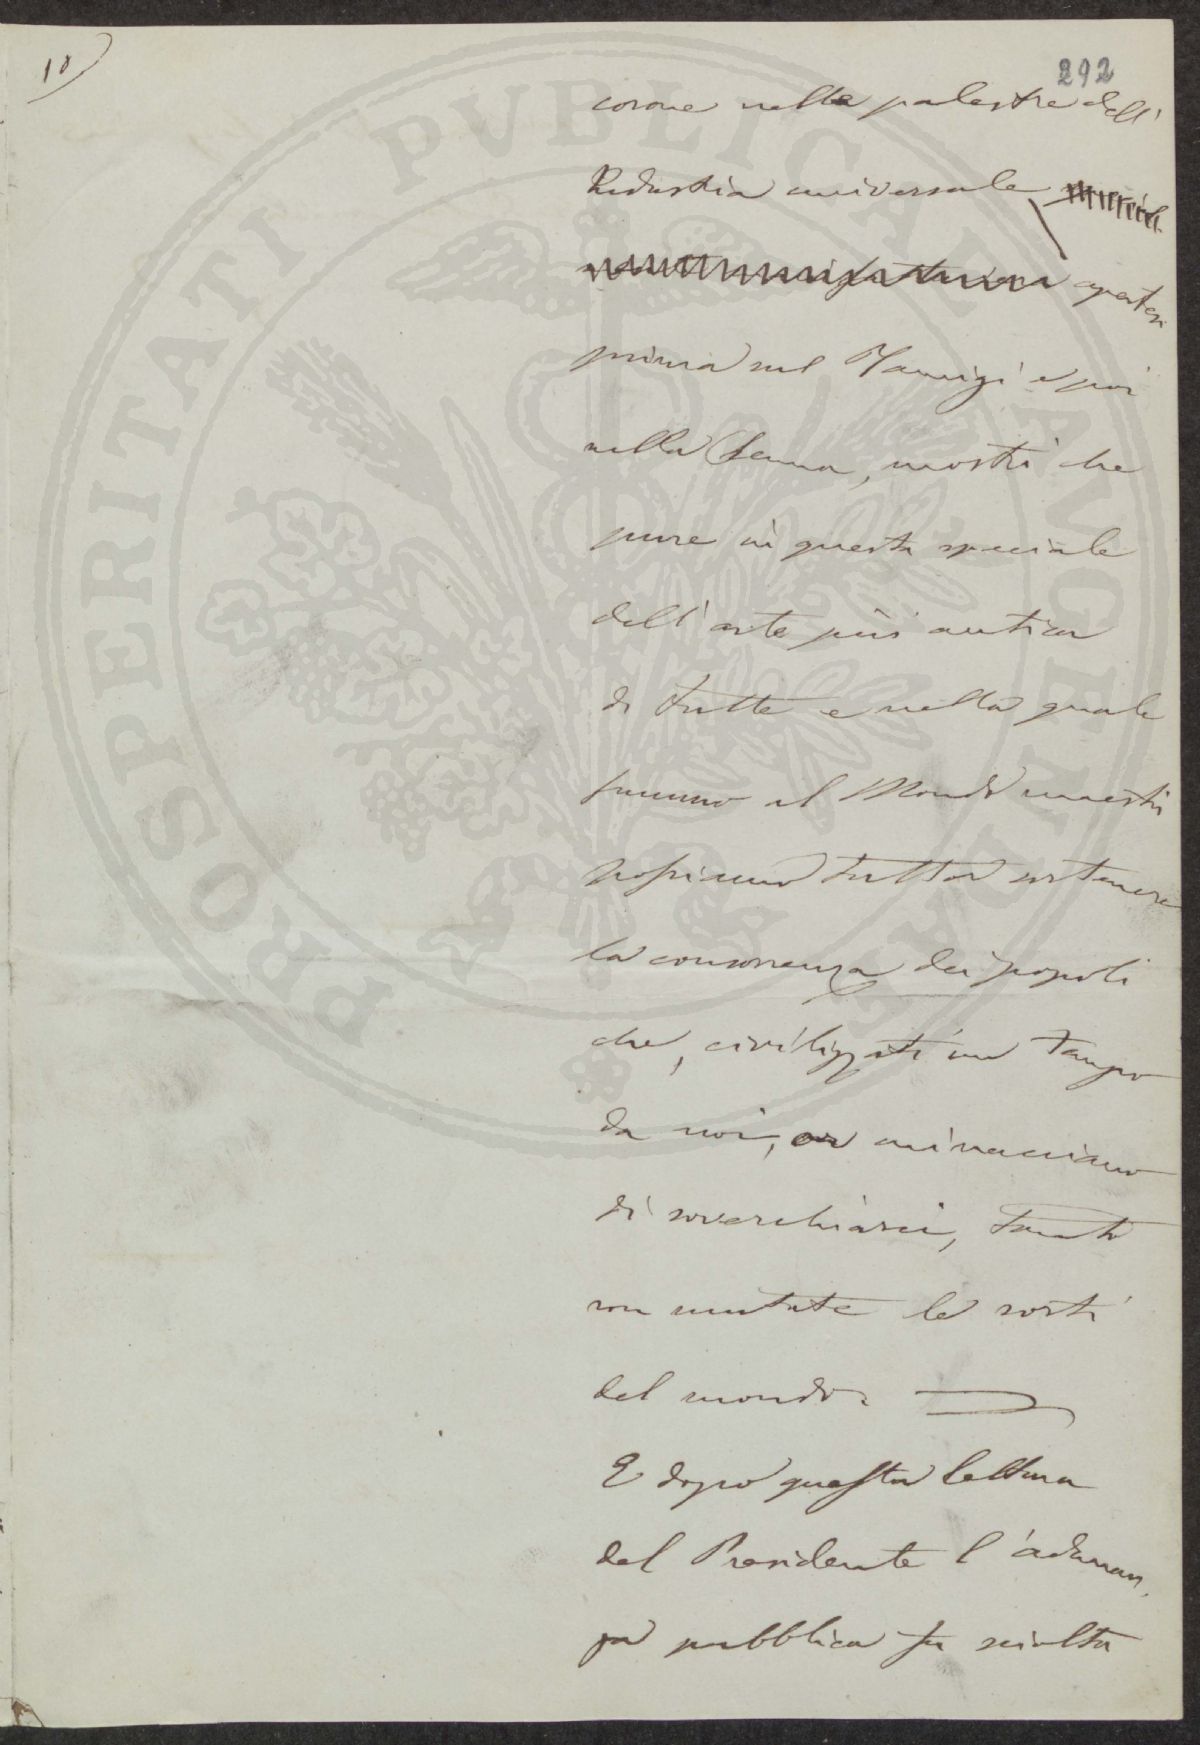 10)
292
corone nelle palestre dell'
Industria universale
aperte
prima sul Tamigi e poi
nella Senna, mostri che
pure in questa speciale
dell'arte più antica
di tutte e nella quale
fummo al Mondo maestri
possiamo tuttora sostenere
la concorrenza dei popoli
che, civilizzati un tempo
da noi, or minacciano
di soverchiarci, tanto
son mutate le sorti
del mondo.
E dopo questa lettura
del Presidente l'adunan,
za pubblica fu sciolta
PROSPERITATI PVBLICAE AVGENDAE